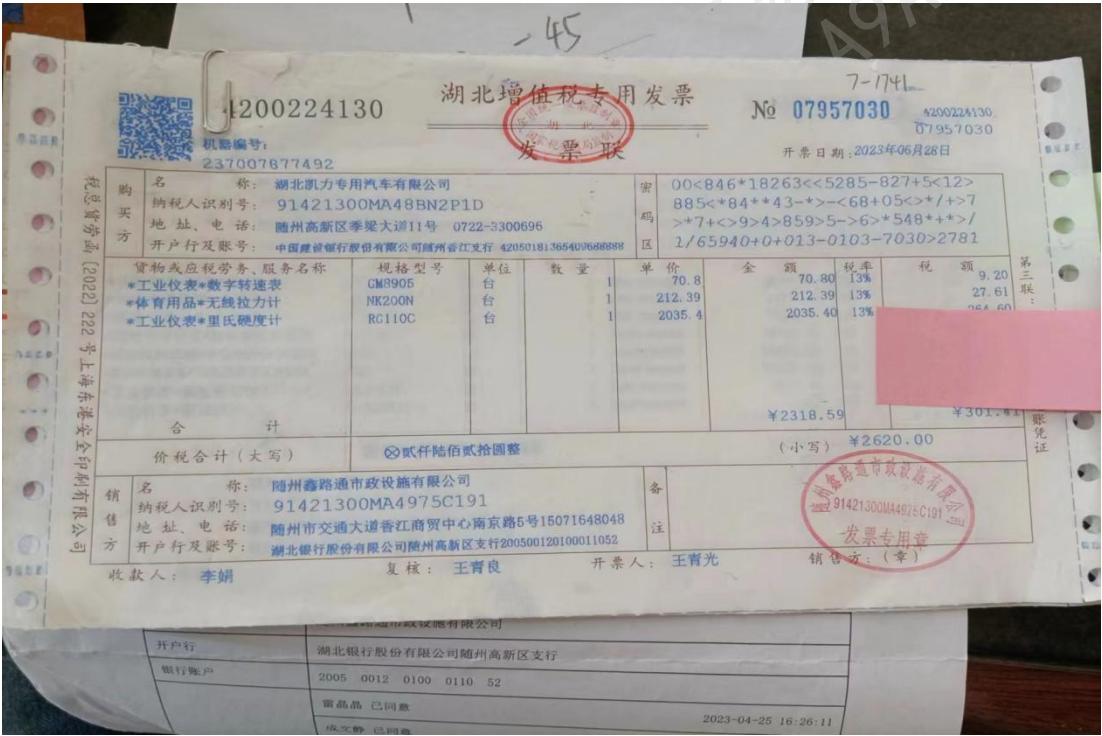 -45
7-1741
4200224130
湖北增值税专用发票
发票联
No 07957030
4200224130
07957030
机器编号:
237007877492
开票日期:2023年06月28日
税总货劳函〔2022〕222号上海东港安全印刷有限公司
购买方
名 称: 湖北凯力专用汽车有限公司
纳税人识别号: 91421300MA48BN2P1D
地 址、电 话: 随州高新区季梁大道11号 0722-3300696
开户行及账号: 中国建设银行股份有限公司随州香江支行 42050181365409688888
密码区
00<846*18263<<5285-827+5<12>
885<*84**43-*>-<68+05<>*/+>7
>*7+<>9>4>859>5->6>*548*+*>/
1/65940+0+013-0103-7030>2781
货物或应税劳务、服务名称 规格型号 单位 数量 单价 金额 税率 税额
*工业仪表*数字转速表 GM8905 台 1 70.8 70.80 13% 9.20
*体育用品*无线拉力计 NK200N 台 1 212.39 212.39 13% 27.61
*工业仪表*里氏硬度计 RG110C 台 1 2035.4 2035.40 13% 264.60
合计 ¥2318.59 ¥301.41
价税合计(大写) ⊗贰仟陆佰贰拾圆整 (小写) ¥2620.00
第三联:
账凭证
销售方
名 称: 随州鑫路通市政设施有限公司
纳税人识别号: 91421300MA4975C191
地 址、电 话: 随州市交通大道香江商贸中心南京路5号15071648048
开户行及账号: 湖北银行股份有限公司随州高新区支行200500120100011052
备注
随州鑫路通市政设施有限公司
91421300MA4975C191
发票专用章
收款人: 李娟 复核: 王青良 开票人: 王青光 销售方:(章)
路通市政设施有限公司
开户行 湖北银行股份有限公司随州高新区支行
银行账户 2005 0012 0100 0110 52
雷晶晶 已同意
2023-04-25 16:26:11
已同意